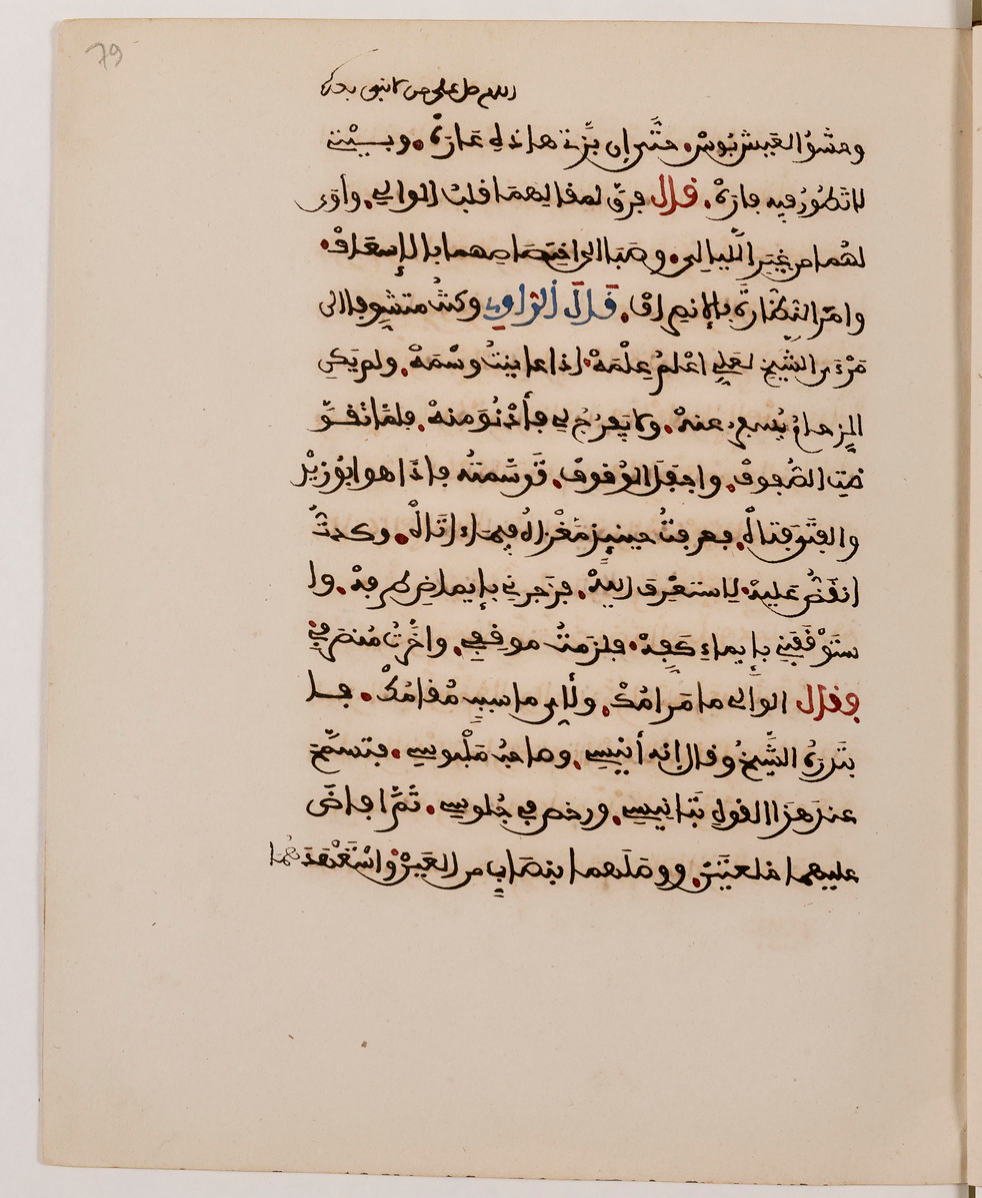 79
اللهم صل على من لا نبي بعده
وحشو العيش بوس. حتى إن بزتنا هاذه عارة. وبيتنا
لا تطور فيه فارة. قال فرق لمقالهما قلب الوالي. وأوى
لهما من غير الليالي. وصبا الى اختصاصهما بالإسعاف.
وامر النظارة بالانصراف. قال الراوي وكنت متشوفا الى
مرءى الشيخ لعلي اعلم علمه. اذا عاينت وسمه. ولم يكن
الزحام يسفر عنه. ولا يفرج لي فأدنو منه. فلما تقو
ضت الصفوف. واجفل الوقوف. توسمته فاذا هو ابو زيد
والفتى فتاه. فعرفت حينيذ مغزاه فيما اتاه. وكدت
انقض عليه. لاستعرف اليه. فزجرني بإيماض طرفه. وا
ستوقفني بإيماء كفه. فلزمت موقفي. واخرت منصرفي
فقال الوالى ما مرامك. ولأي ما سبب مقامك. فا
بتدره الشيخ وقال إنه أنيسي. وصاحب ملبوسي. فتسمح
عند هذا القول بتانيسي. ورخص في جلوسي. ثم افاض
عليهما خلعتين. ووصلهما بنصاب من العين. واستعهدهما